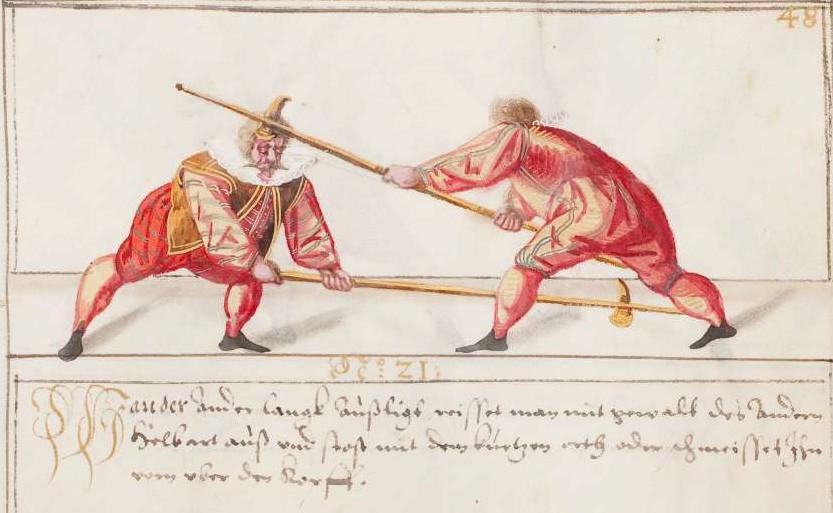 48
No: 21:
Wan der ander langk außligt reisset man mit gewalt des andern
Helbart auß vnd stost mit dem kurtzen orth oder schmeisset Ihn
vorn vber den Kopff.